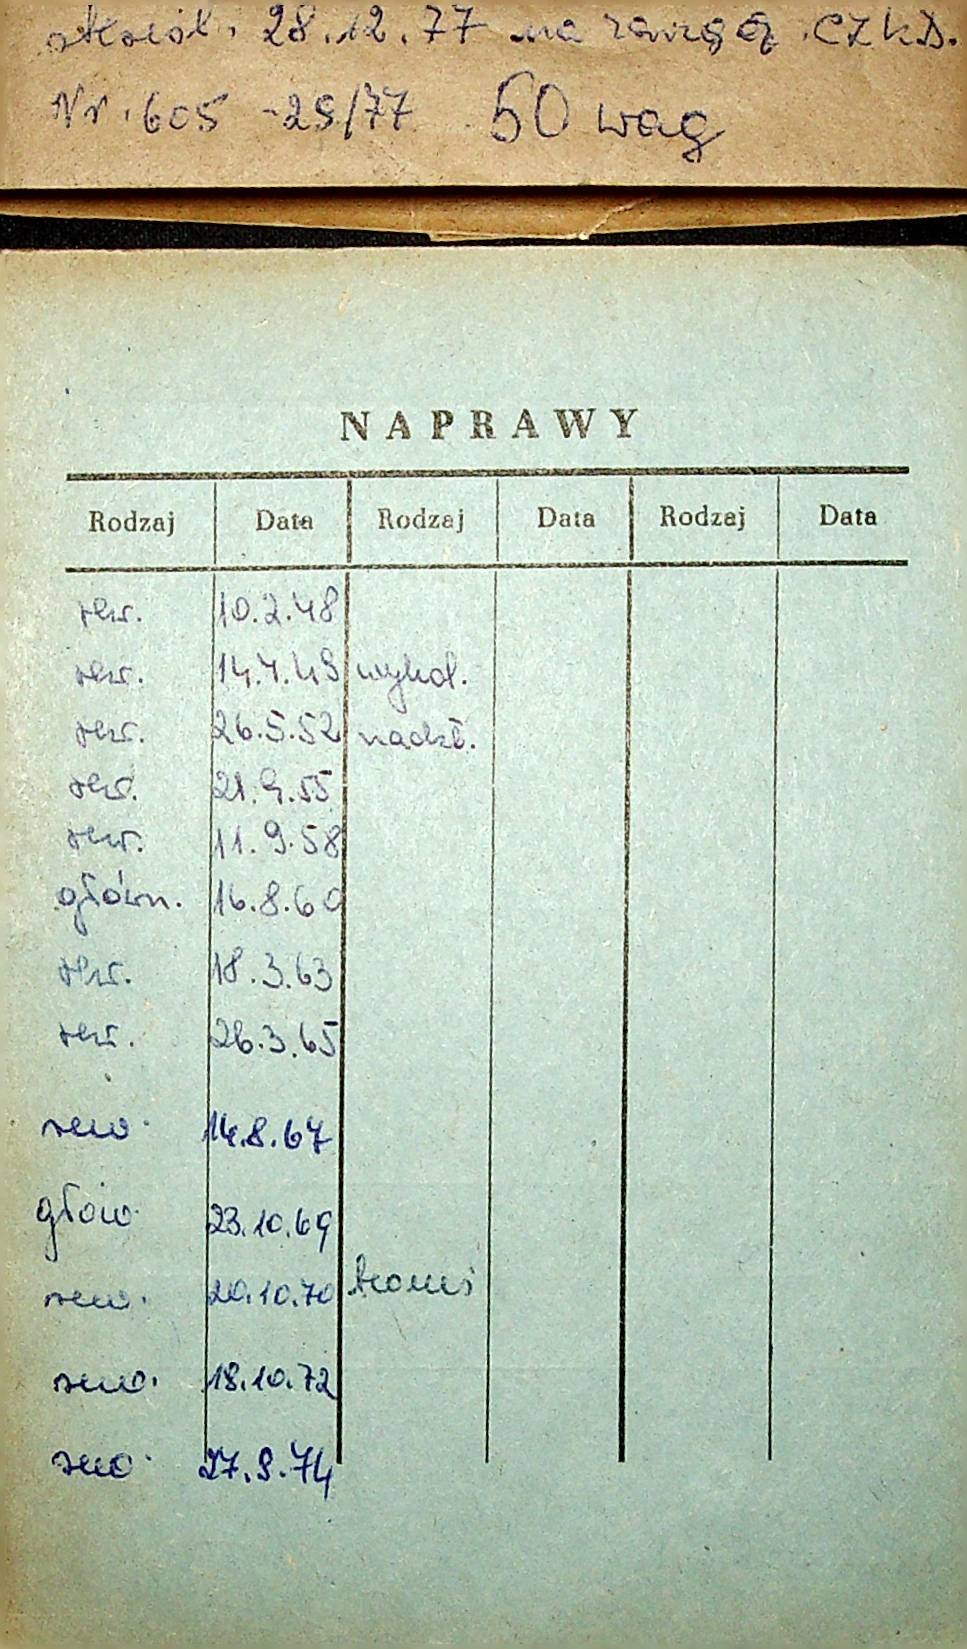 28.12.77 na CZKD.
Nr. 605 -29/77 50 wag
NAPRAWY
Rodzaj Data Rodzaj Data Rodzaj Data
rew. 10.2.48
rew. 14.7.49 wykol.
rew. 26.5.52
rew. 21.9.55
rew. 11.9.58
główn. 16.8.60
rew. 18.3.63
rew. 26.3.65
rew. 14.8.67
głów. 23.10.69
rew. 20.10.70
rew. 18.10.72
rew. 27.9.74